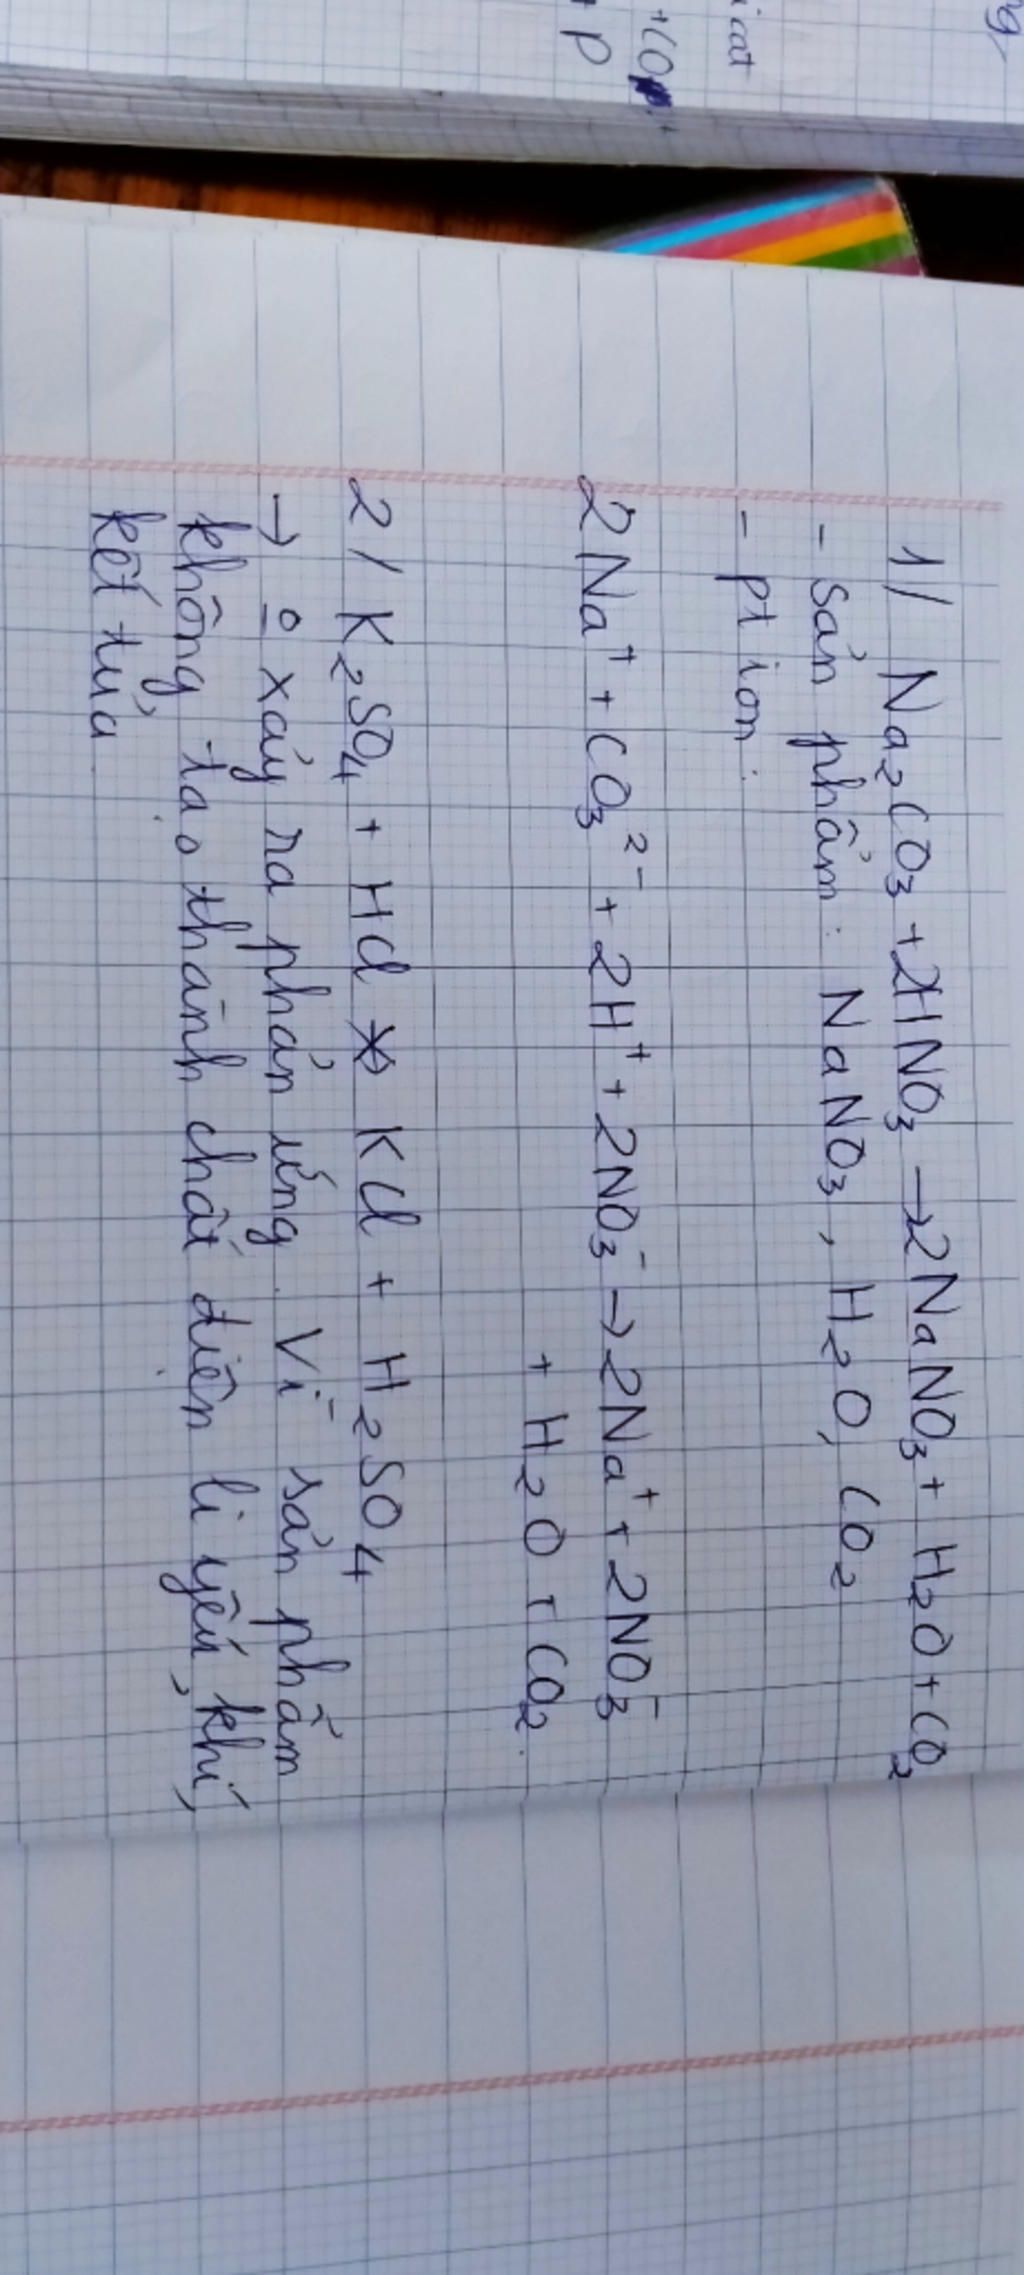 icat
+ P
1/ Na₂CO₃ + 2HNO₃ → 2NaNO₃ + H₂O + CO₂
- Sản phẩm : NaNO₃ , H₂O, CO₂
- pt ion :
2Na⁺ + CO₃²⁻ + 2H⁺ + 2NO₃⁻ → 2Na⁺ + 2NO₃⁻
+ H₂O + CO₂.
2/ K₂SO₄ + HCl ↛ KCl + H₂SO₄
→ o xảy ra phản ứng. Vì sản phẩm
không tạo thành chất điện li yếu, khí,
kết tủa